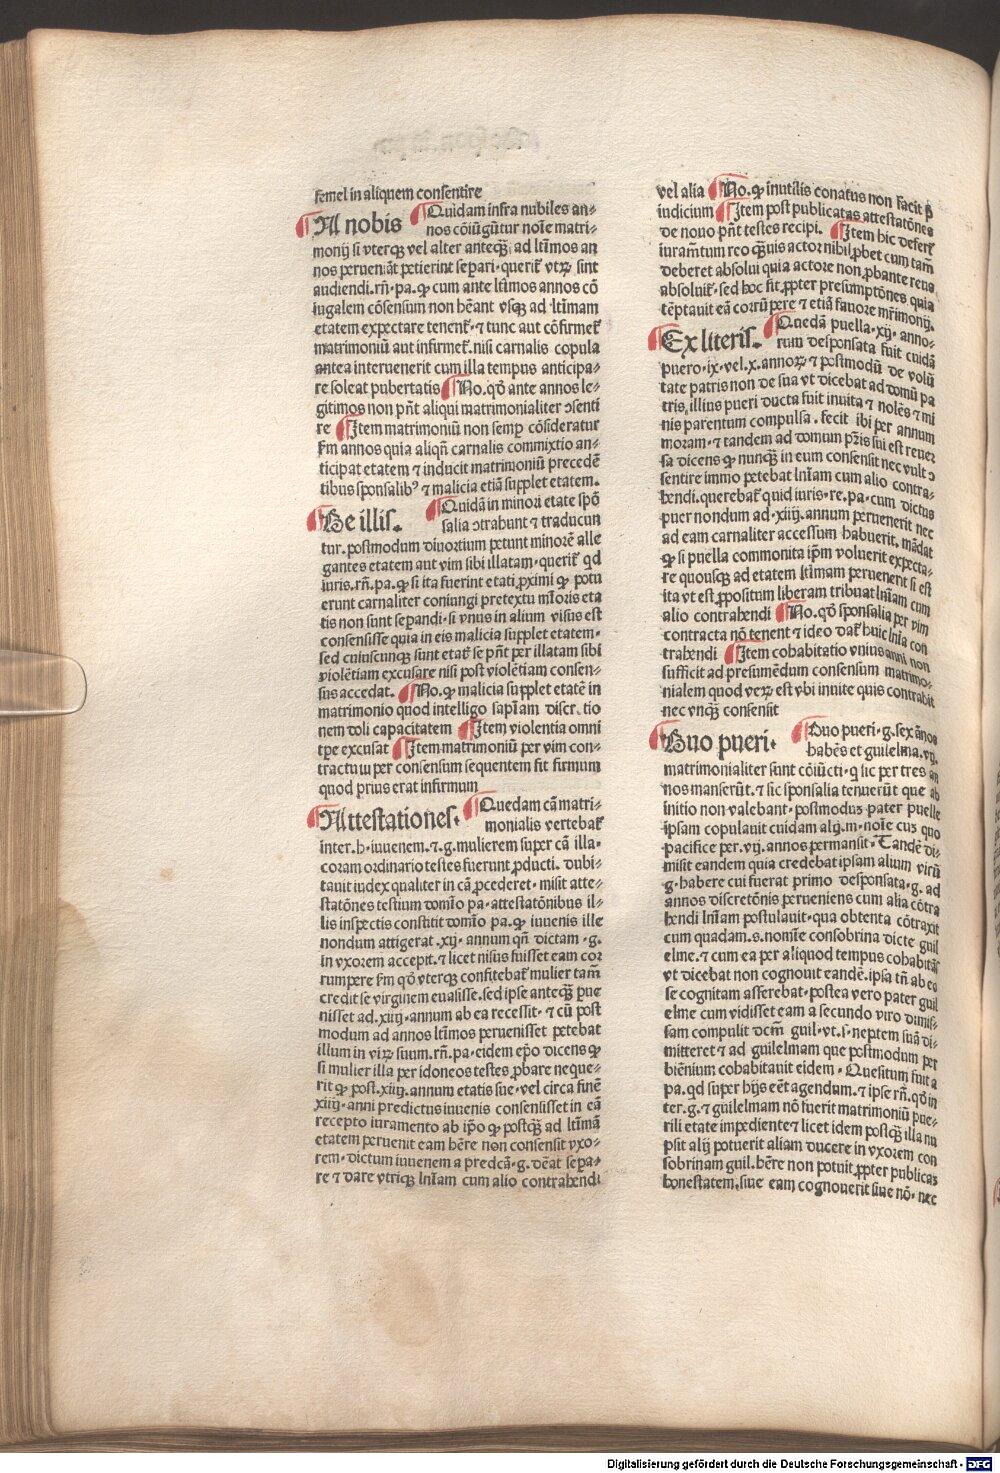 semel in aliquem consentire
A nobis ¶ Quidam infra nubiles an⸗
nos cōiūgūtur noīe matri⸗
monij si vterqꝫ vel alter anteqꝫ̄ ad ltīmos an
nos perueniāt petierint separi · querit̄ vtrꝝ sint
audiendi. rn̄. pa. ꝙ cum ante ltīmos annos cō
iugalem cōsensum non hēant vsqꝫ ad ltīmam
etatem expectare tenent̄ · ⁊ tunc aut cōfirmet̄
matrimoniū aut infirmet̄. nisi carnalis copula
antea interuenerit cum illa tempus anticipa⸗
re soleat pubertatis ¶ No. qō ante annos le⸗
gitimos non pn̄t aliqui matrimonialiter ↄsenti
re ¶ Item matrimoniū non semꝑ cōsideratur
fm̄ annos quia aliqn̄ carnalis commixtio an⸗
ticipat etatem ⁊ inducit matrimoniū precedē
tibus sponsalibꝰ ⁊ malicia etiā supplet etatem.
De illis. ¶ Quidā in minori etate spō
salia ↄtrahunt ⁊ traducun
tur. postmodum diuortium petunt minorē alle
gantes etatem aut vim sibi illatam · querit̄ qd
iuris. rn̄. pa. ꝙ si ita fuerint etati ꝓximi ꝙ potu
erunt carnaliter coniungi pretextu mīoris eta
tis non sunt sepandi · si vnus in alium visus est
consensisse quia in eis malicia supplet etatem ·
sed cuiuscunqꝫ sunt etat̄ se pn̄t per illatam sibi
violētiam excusare nisi post violētiam consen⸗
sus accedat. ¶ No. ꝙ malicia supplet etatē in
matrimonio quod intelligo sapīam discr. tio
nem doli capacitatem ¶ Item violentia omni
tꝑe excusat ¶ Item matrimoniū per vim con⸗
tractum per consensum sequentem fit firmum
quod prius erat infirmum
Attestationes · ¶ Quedam cā matri⸗
monialis vertebat̄
inter. h · iuuenem. ⁊. g. mulierem super cā illa ·
coram ordinario testes fuerunt ꝓducti. dubi⸗
tauit iudex qualiter in cā ꝓcederet · misit atte⸗
statōnes testium domīo pa · attestatōnibus il⸗
lis inspectis constitit domīo pa. ꝙ iuuenis ille
nondum attigerat. xij · annum qn̄ dictam · g.
in vxorem accepit. ⁊ licet nisus fuisset eam cor
rumpere fm̄ qō vterqꝫ confitebat̄ mulier tam̄
credit se virginem euasisse. sed ipse anteqꝫ̄ ꝑue
nisset ad. xiiij · annum ab ea recessit · ⁊ cū post
modum ad annos ltīmos peruenisset petebat
illum in virꝝ suum. rn̄. pa · eidem ep̄o dicens ꝙ
si mulier illa per idoneos testes ꝓbare neque⸗
rit ꝙ post. xiiij. annum etatis sue · vel circa finē
xiiij · anni predictus iuuenis consensisset in eā
recepto iuramento ab ip̄o ꝙ postqꝫ̄ ad ltīmā
etatem peruenit eam hēre non consensit vxo⸗
rem · dictum iuuenem a predcā · g. dēat sepa⸗
re ⁊ dare vtriqꝫ lnīam cum alio contrahendi
vel alia ¶ No. ꝙ inutilis conatus non facit ꝑ
iudicium ¶ Item post publicatas attestatōnes
de nouo pn̄t testes recipi. ¶ Item hic defert̄
iuramtum reo qꝫ̄uis actor nihil ꝓbet cum tam̄
deberet absolui quia actore non ꝓbante reus
absoluit̄ · sed hoc fit ꝓpter presumptōnes quia
tēptauit eā corrūpere ⁊ etiā fauore mr̄imonij.
Ex literis. ¶ Quedā puella · xij · anno⸗
rum desponsata fuit cuidā
puero · ix · vel. x. annoꝝ ⁊ postmodū de volū
tate patris non de sua vt dicebat ad domū pa
tris illius pueri ducta fuit inuita ⁊ nolēs ⁊ mi
nis parentum compulsa. fecit ibi per annum
moram · ⁊ tandem ad domum pr̄is sui est reuer
sa dicens ꝙ nunqꝫ̄ in eum consensit nec vult ↄ
sentire immo petebat lnīam cum alio contra⸗
hendi. querebat̄ quid iuris · re. pa · cum dictus
puer nondum ad · xiiij. annum peruenerit nec
ad eam carnaliter accessum habuerit. mādat
ꝙ si puella commonita ip̄m voluerit expecta⸗
re quousqꝫ ad etatem ltīmam peruenerit si est
ita vt est ꝓpositum liberam tribuat lnīam cum
alio contrahendi ¶ No. qō sponsalia per vim
contracta nō tenent ⁊ ideo dat̄ huic lnīa con
trahendi ¶ Item cohabitatio vnius anni non
sufficit ad presumēdum consensum matrimo⸗
nialem quod verꝝ est vbi inuite quis contrahit
nec vnqꝫ̄ consensit
Duo pueri · ¶ Duo pueri · g. sex ānos
habēs et guilelma. vij.
matrimonialiter sunt cōiūcti · q sic per tres an
nos manserūt. ⁊ sic sponsalia tenuerūt que ab
initio non valebant · postmodus pater puelle
ipsam copulauit cuidam alij. m · noīe cuꝫ quo
pacifice per. vij. annos permansit · Tandē di⸗
misit eandem quia credebat ipsam alium virū
g · habere cui fuerat primo desponsata · g. ad
annos discretōnis perueniens cum alia cōtra
hendi lnīam postulauit · qua obtenta cōtraxit
cum quadam. s. nomīe consobrina dicte guil
elme · ⁊ cum ea per aliquod tempus cohabitās
vt dicebat non cognouit eandē. ipsa tn̄ ab eo
se cognitam asserebat · postea vero pater guil
elme cum vidisset eam a secundo viro dimis⸗
sam compulit dcm̄ guil · vt. s · neptem suā di⸗
mitteret ⁊ ad guilelmam que postmodum per
biēnium cohabitauit eidem · Quesitum fuit a
pa. qd super hijs eēt agendum. ⁊ ipse rn̄. qō in
ter. g. ⁊ guilelmam nō fuerit matrimoniū pue⸗
rili etate impediente ⁊ licet idem postqꝫ̄ illa nu
psit alij potuerit aliam ducere in vxorem con
sobrinam guil. hēre non potuit ꝓpter publicas
honestatem. siue eam cognouerit siue nō · nec
Digitalisierung gefördert durch die Deutsche Forschungsgemeinschaft - DFG